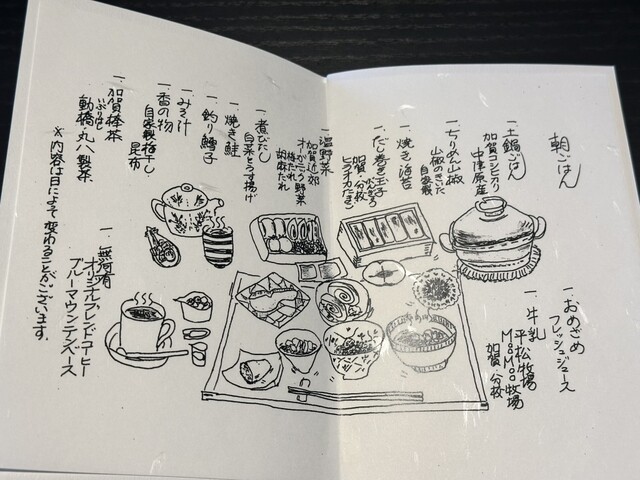 朝ごはん
一、土鍋ごはん
加賀コシヒカリ
中津原産
一、ちりめん山椒
山椒のきいた
自家製
一、焼き海苔
一、だし巻き玉子
加賀 分校
ヒラオカたまご
一、温野菜
加賀近郊
オーガニック野菜
梅だれ
胡麻だれ
一、煮びたし
白菜とうす揚げ
一、焼き鮭
一、釣り鱈子
一、みそ汁
一、香の物
自家製梅干し
昆布
一、加賀棒茶
ぶりはし
動橋・丸八製茶
※内容は日によって変わることがございます。
一、おめざめ
フレッシュジュース
一、牛乳
平松牧場
MoMoO牧場
加賀 分校
一、無何有
オリジナルブレンドコーヒー
ブルーマウンテンベース